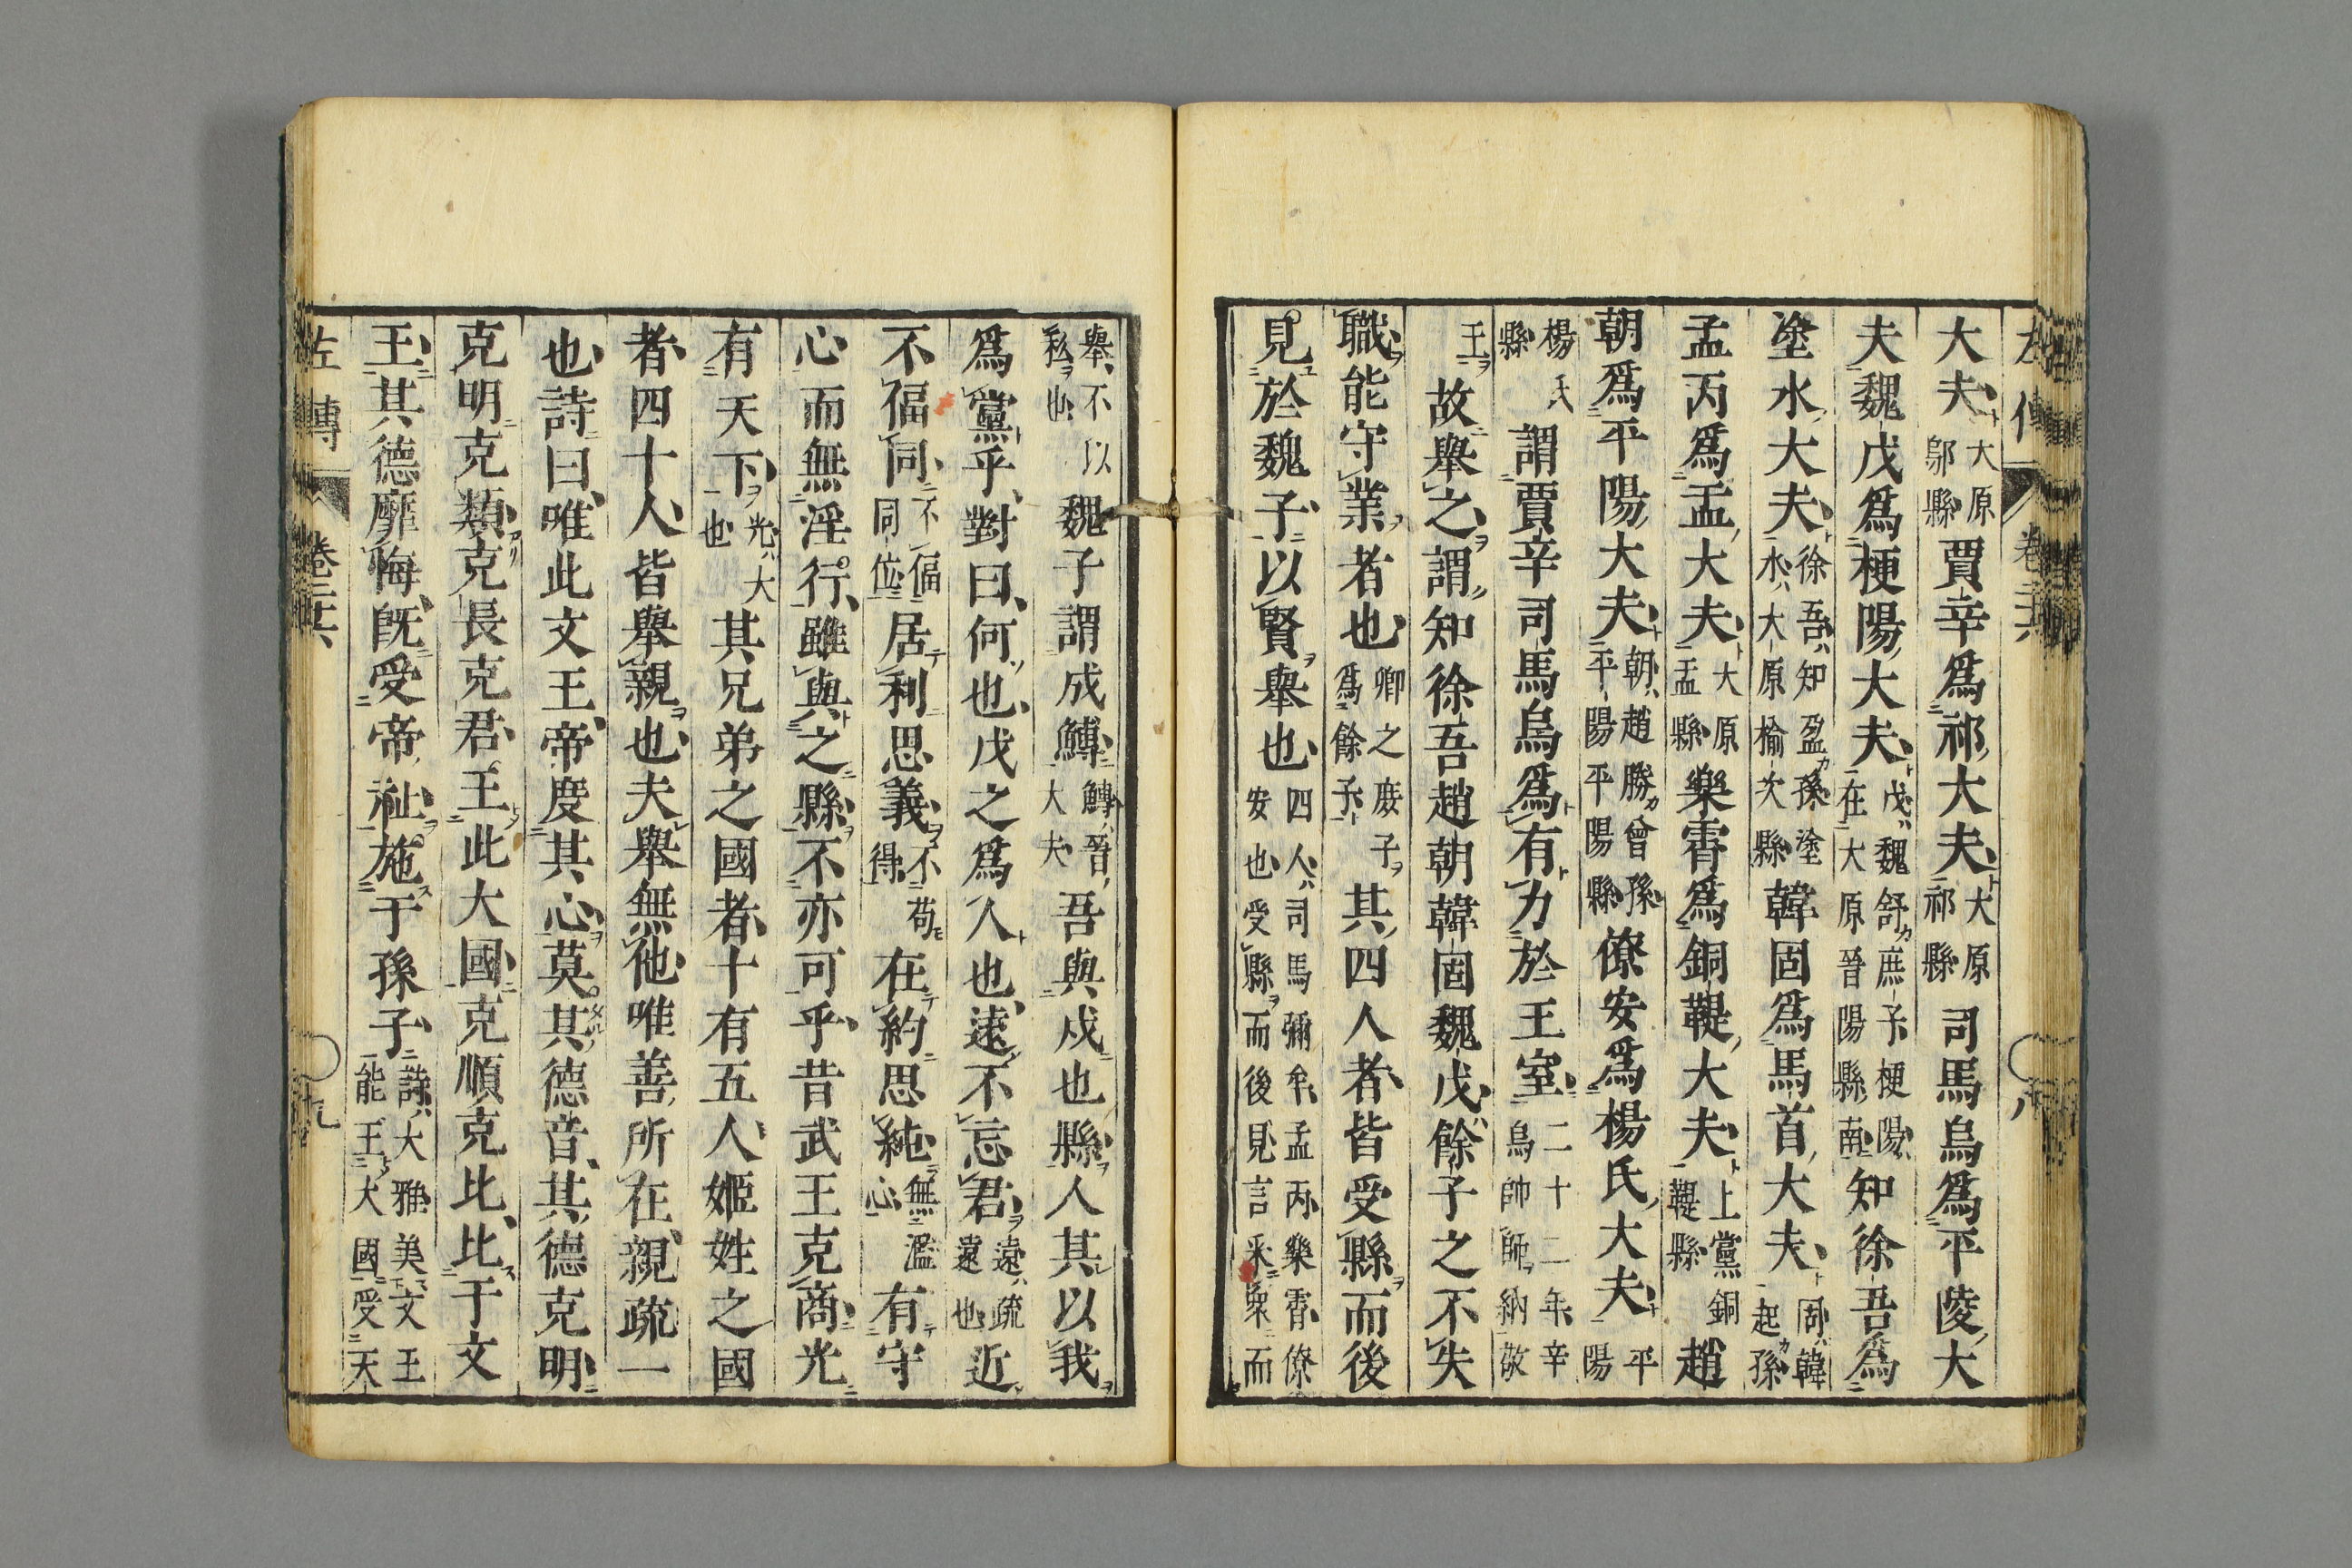 左傳 卷二十六 八
大夫大原鄔縣賈辛爲祁大夫大原祁縣司馬烏爲平陵大
夫魏戊爲梗陽大夫戊魏舒庶子梗陽在大原晉陽縣南知徐吾爲
塗水大夫徐吾知盈孫塗水大原榆次縣韓固爲馬首大夫固韓起孫
孟丙爲盂大夫大原盂縣樂霄爲銅鞮大夫上黨銅鞮縣趙
朝爲平陽大夫朝趙勝曾孫平陽平陽縣僚安爲楊氏大夫平陽
楊氏縣謂賈辛司馬烏爲有力於王室二十二年辛烏帥師納敬
王故舉之謂知徐吾趙朝韓固魏戊餘子之不失
職能守業者也卿之庶子爲餘子其四人者皆受縣而後
見於魏子以賢舉也四人司馬彌牟孟丙樂霄僚安也受縣而後見言采衆而
舉不以私也魏子謂成鱄鱄晉大夫吾與戊也縣人其以我
爲黨乎對曰何也戊之爲人也遠不忘君遠疏遠也近
不偪同不偪同位居利思義不苟得在約思純無濫心有守
心而無淫行雖與之縣不亦可乎昔武王克商光
有天下光大也其兄弟之國者十有五人姬姓之國
者四十人皆舉親也夫舉無他唯善所在親疏一
也詩曰唯此文王帝度其心莫其德音其德克明
克明克類克長克君王此大國克順克比比于文
王其德靡悔既受帝祉施于孫子詩大雅美文王能王大國受天
左傳 卷二十六 十九